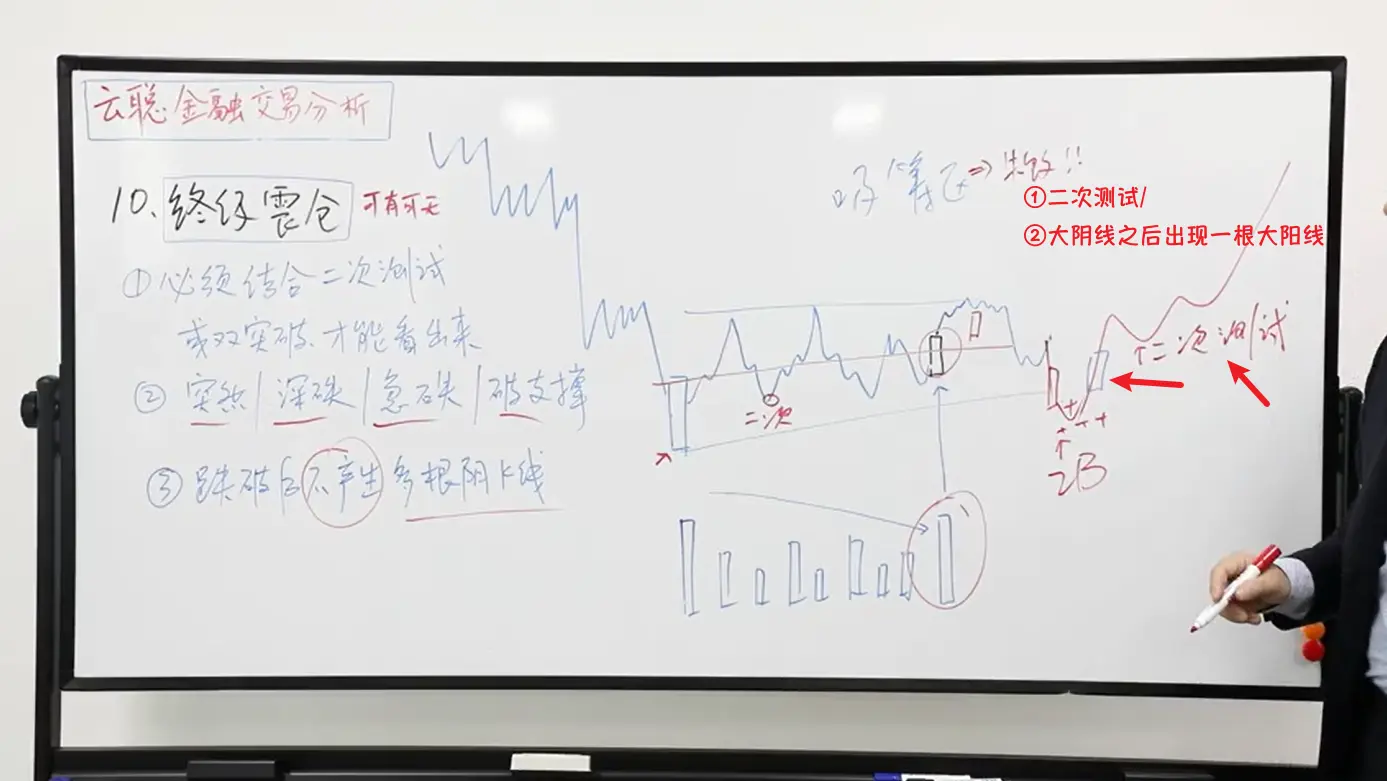 云聪金融交易分析
10.终级震仓 可有可无
①必须结合二次测试
或双突破,才能看出来
② 突然/深跌/急跌/破支撑
③ 跌破后不产生多根阴K线
吸筹区⇒失败!!
①二次测试/
②大阴线之后出现一根大阳线
↑二次测试
二次
2B